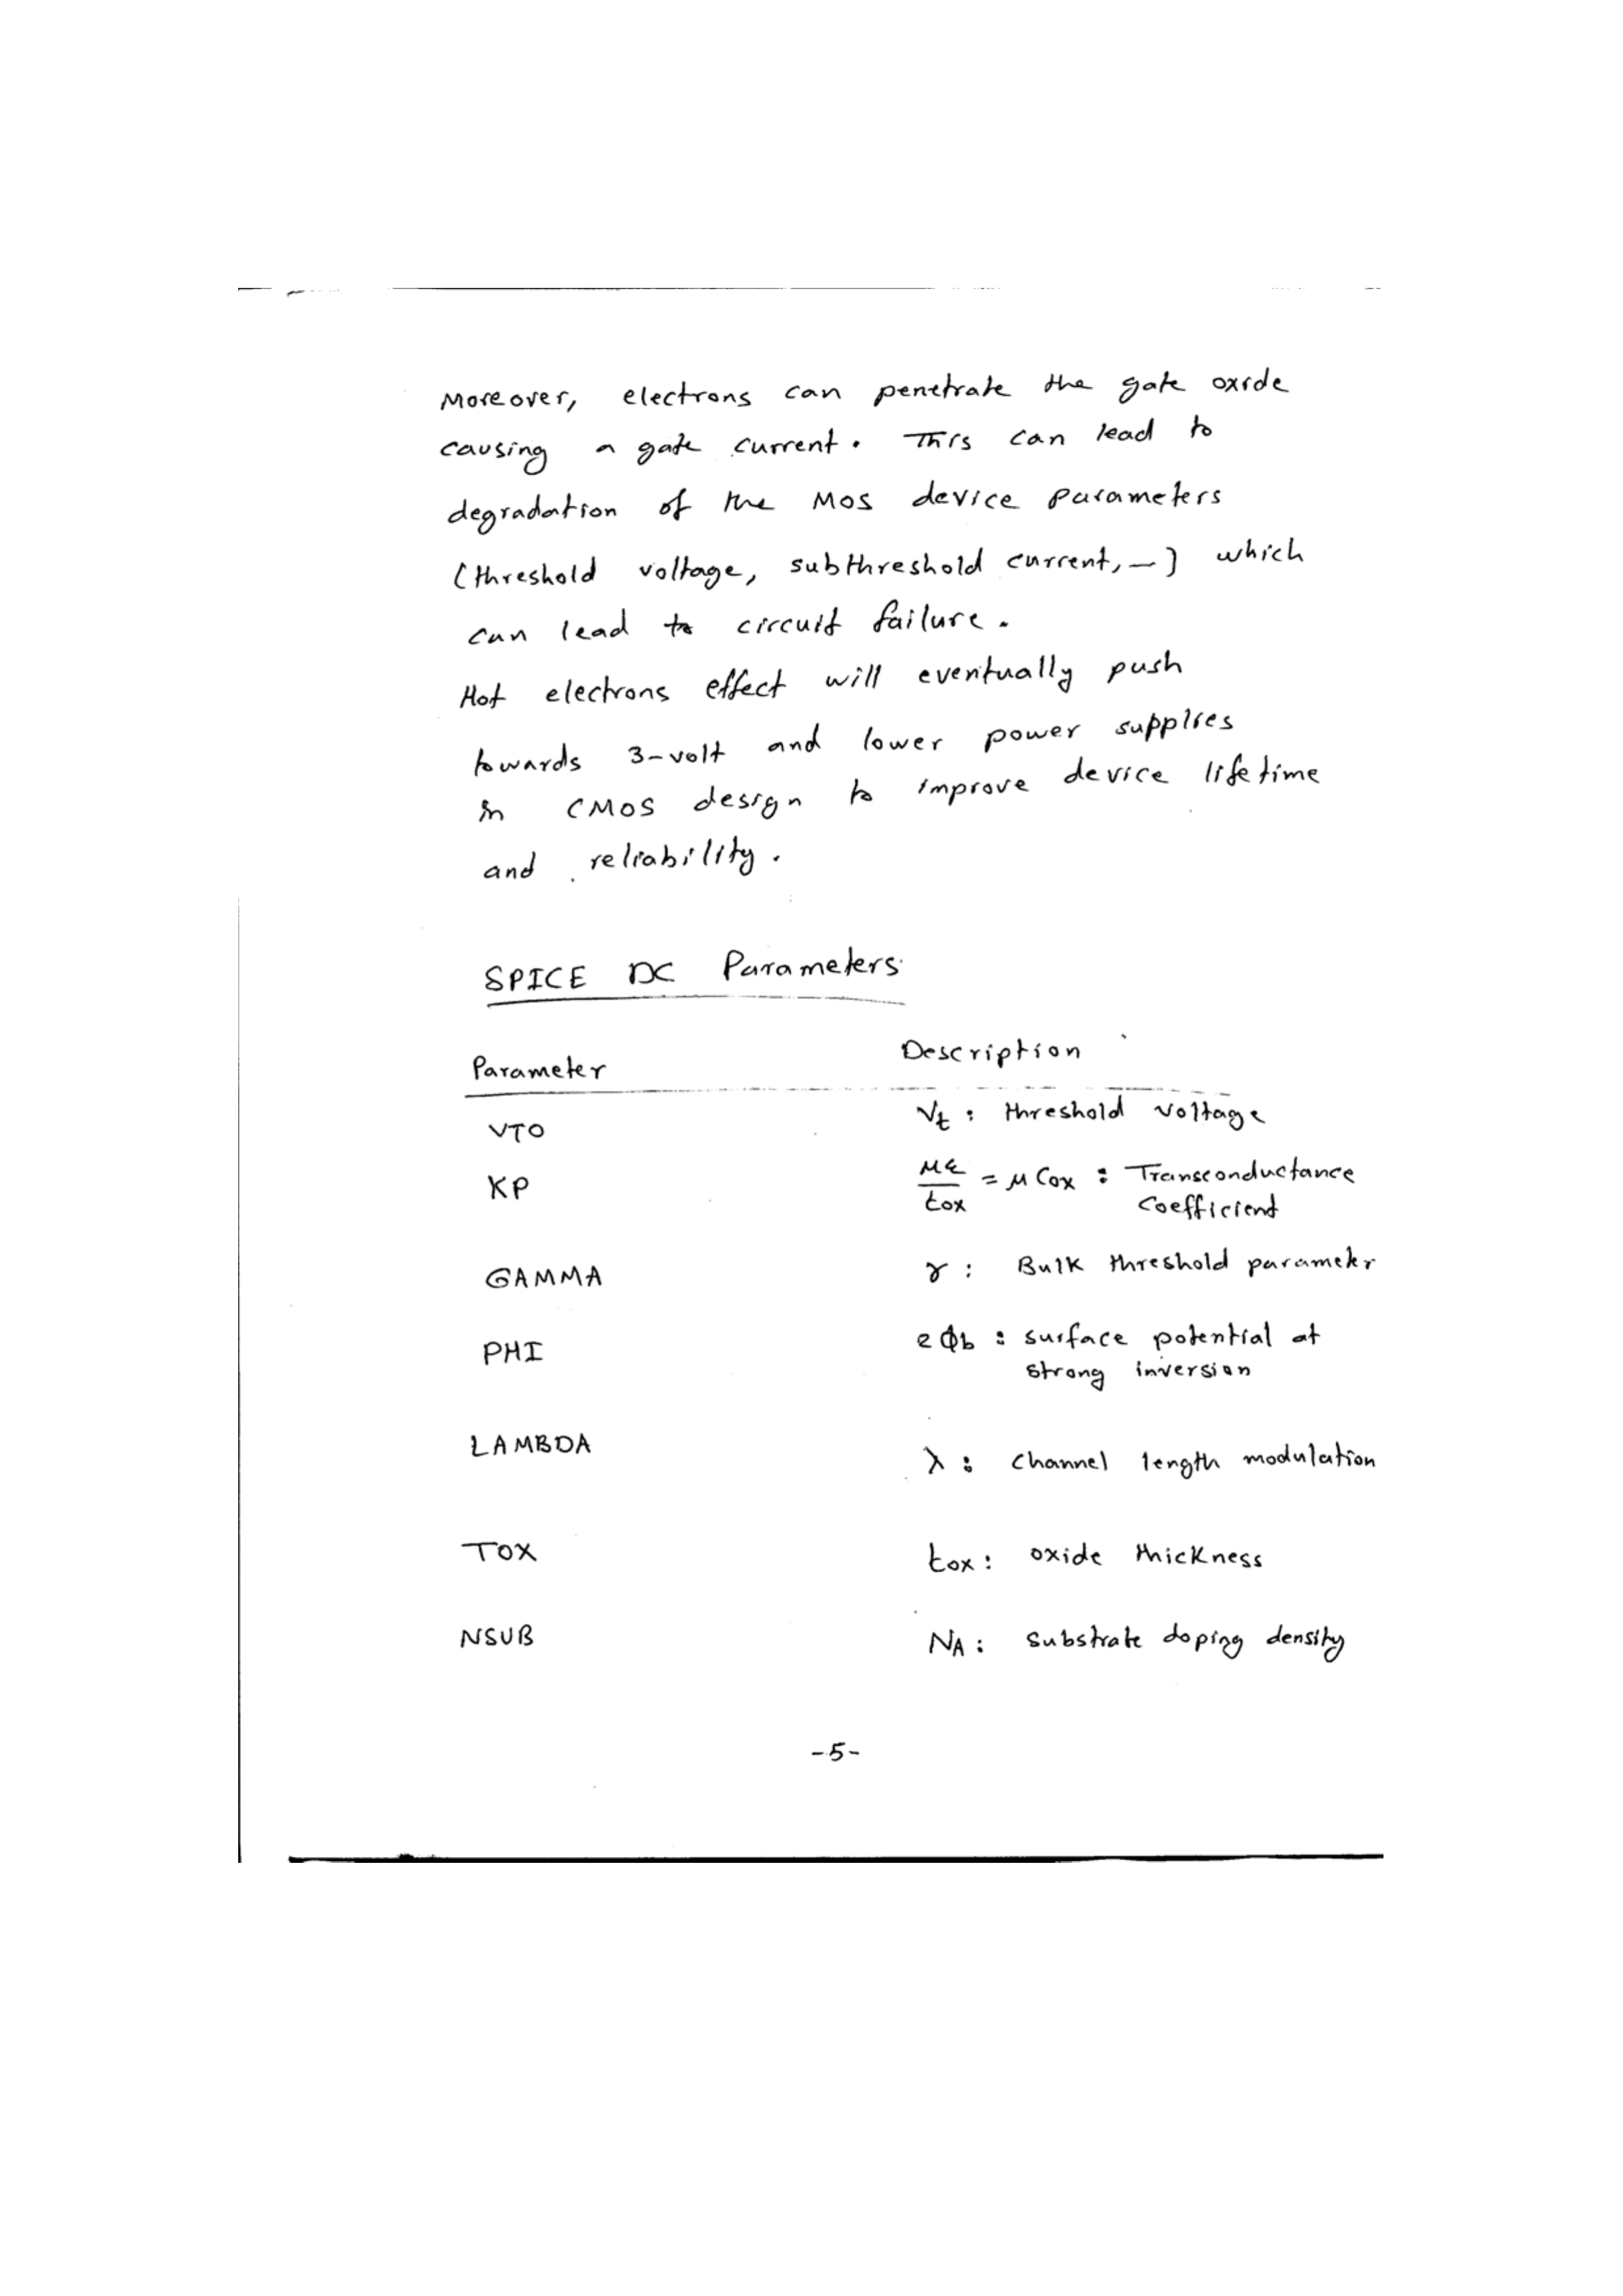 Moreover, electrons can penetrate the gate oxide
causing a gate current. This can lead to
degradation of the MOS device parameters
(threshold voltage, subthreshold current, —) which
can lead to circuit failure.
Hot electrons effect will eventually push
towards 3-volt and lower power supplies
in CMOS design to improve device lifetime
and reliability.
SPICE DC Parameters
Parameter Description
VTO Vt : threshold voltage
KP με/tox = μ Cox : Transconductance
Coefficient
GAMMA γ : Bulk threshold parameter
PHI 2Φb : surface potential at
strong inversion
LAMBDA λ : Channel length modulation
TOX tox : oxide thickness
NSUB NA : substrate doping density
-5-